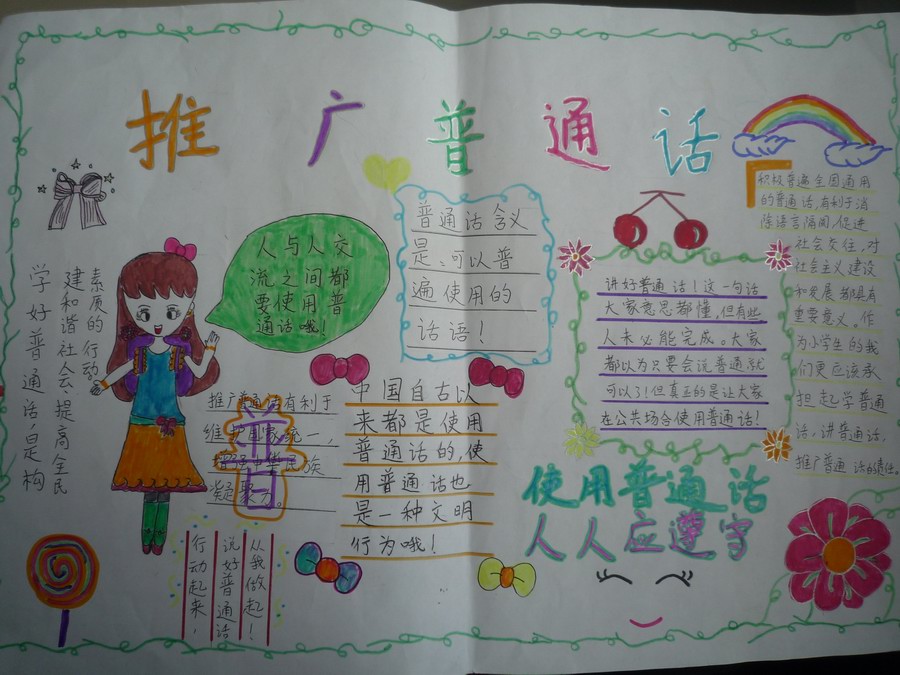 推广普通话
学好普通话,是构
建和谐社会提高全民
素质的行动
人与人交
流之间都
要使用普
通话哦!
普通话含义
是:可以普
遍使用的
话语!
推广普通话有利于
维护国家统一,
民族
凝聚力。
中国自古以
来都是使用
普通话的,使
用普通话也
是一种文明
行为哦!
行动起来,
说好普通话
从我做起!
讲好普通话!这一句话
大家意思都懂,但有些
人未必能完成。大家
都以为只要会说普通就
可以了!但真正的是让大家
在公共场合使用普通话!
使用普通话
人人应遵守
积极普遍全国通用
的普通话,有利于消
除语言隔阂,促进
社会交往,对
社会主义建设
和发展都具有
重要意义。作
为小学生的我
们更应该承
担起学普通
话,讲普通话,
推广普通话的责任。